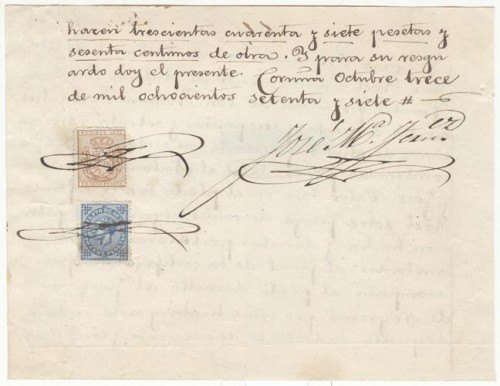 haceri trescientas cuarenta y siete pesetas y
sesenta centimos de otra. Y para su resgu
ardo doy el presente. Coruña Octubre trece
de mil ochocientos setenta y siete #
José Mª